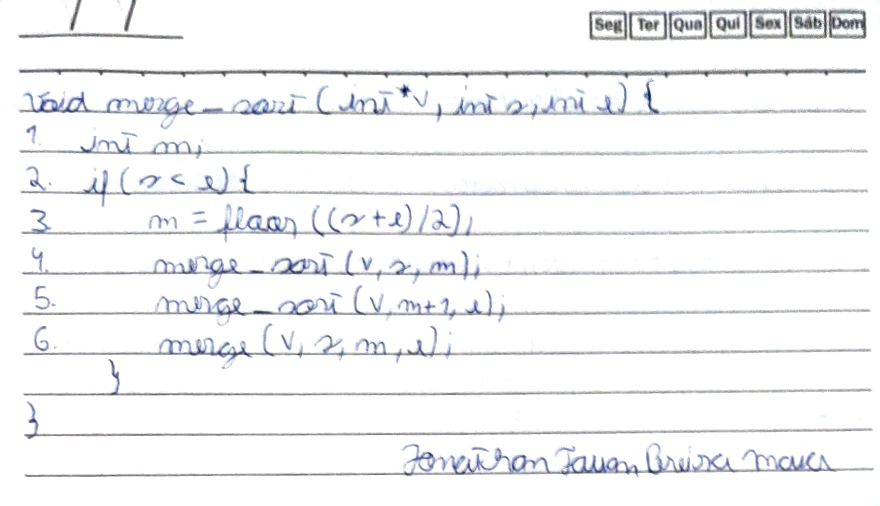 Seg Ter Qua Qui Sex Sáb Dom
void merge_sort (int *v, int s, int e) {
1. int m;
2. if (s < e) {
3 m = floor ((s+e)/2);
4. merge_sort (v, s, m);
5. merge_sort (v, m+1, e);
6. merge (v, s, m, e);
}
}
Jonathan